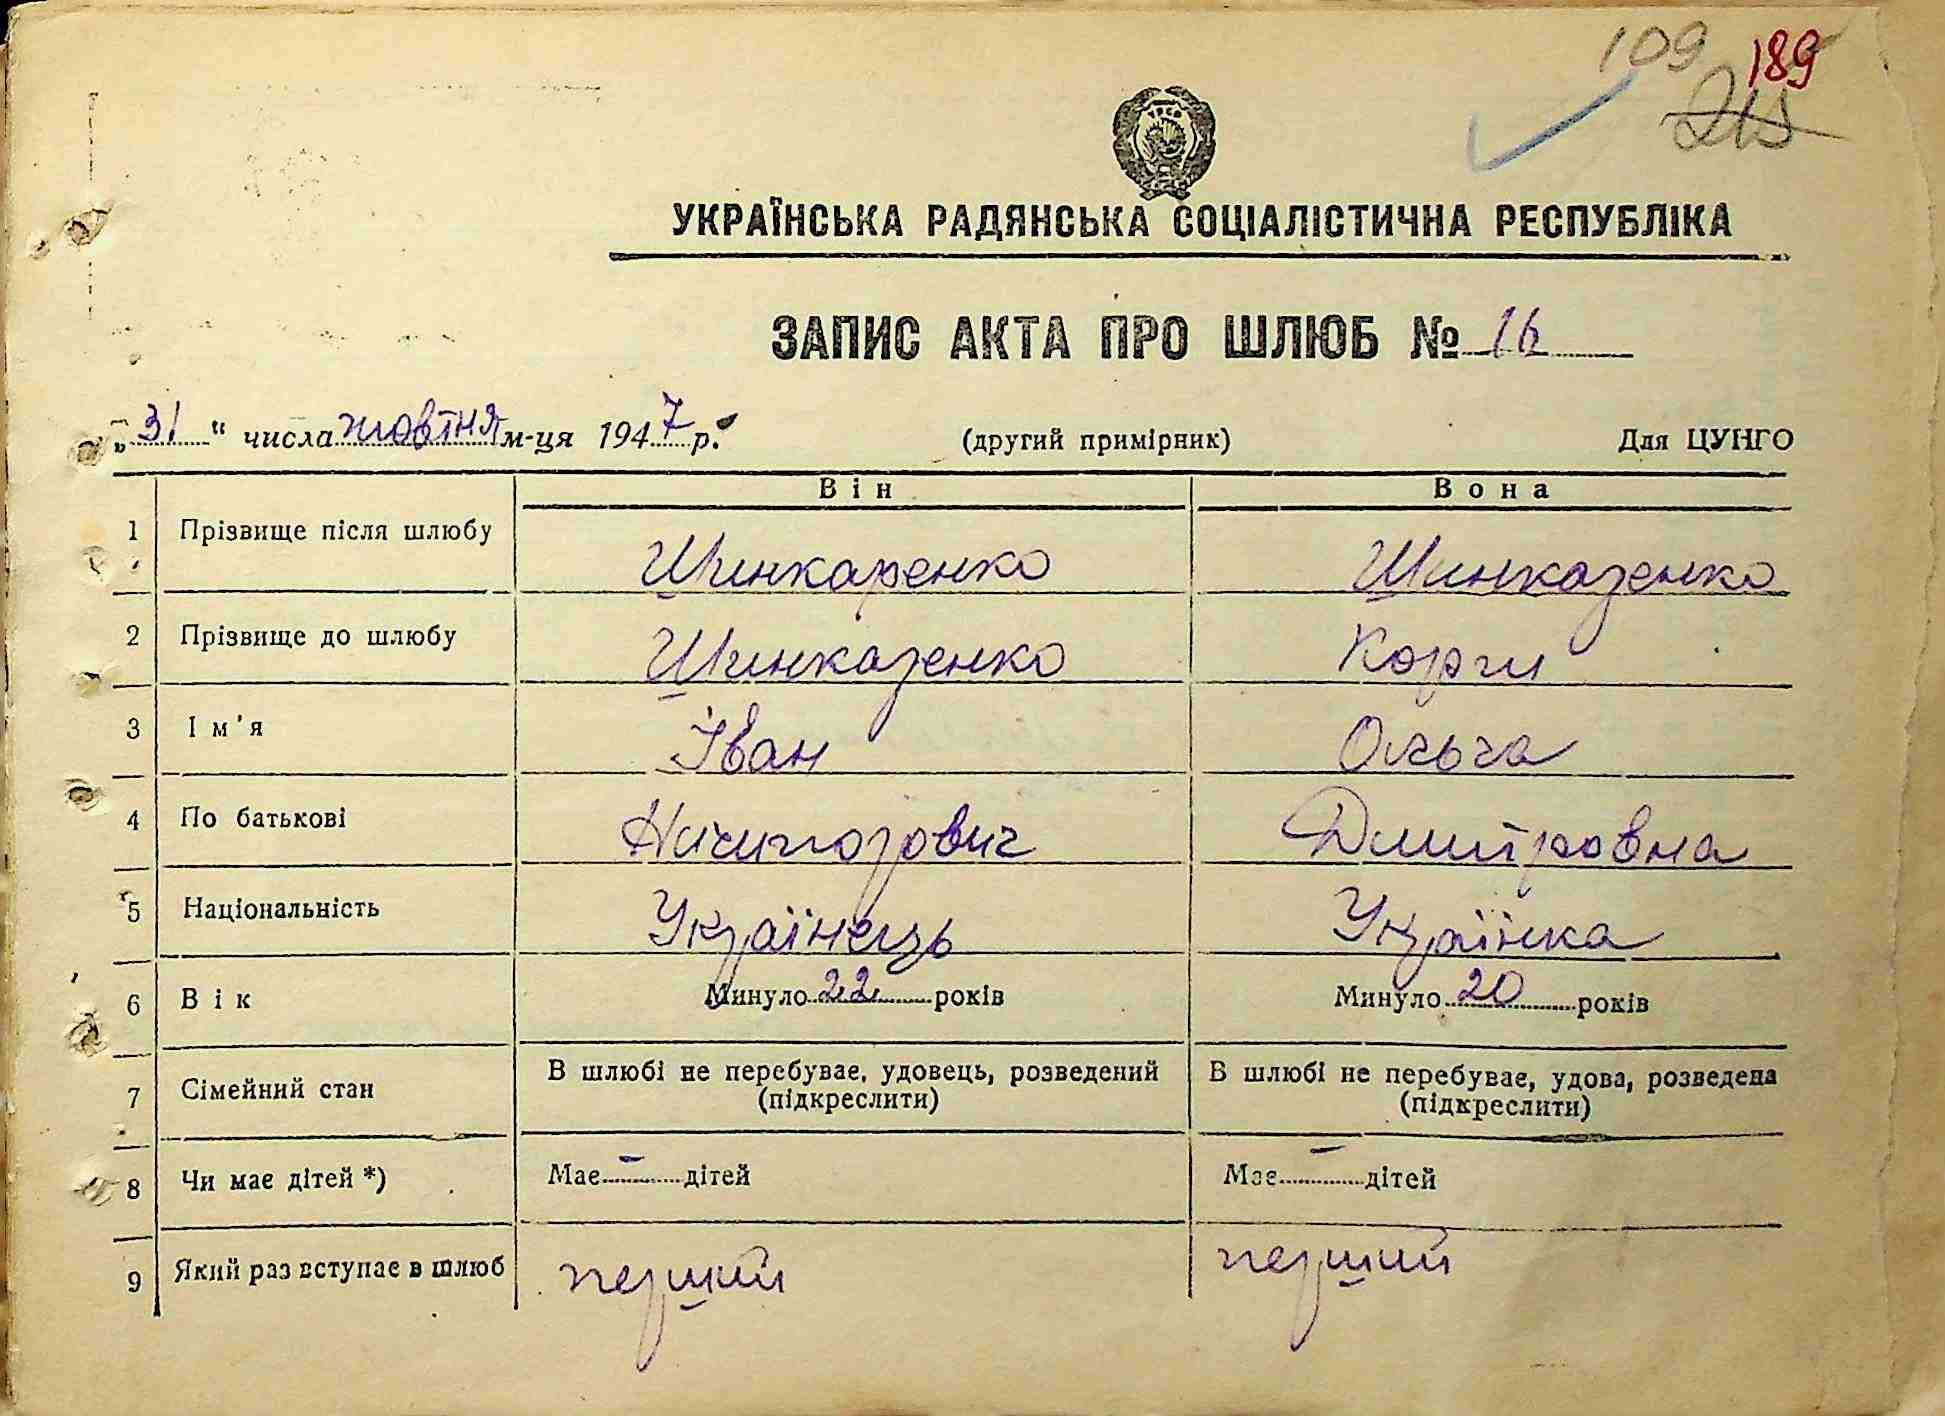 109 189
215
УКРАЇНСЬКА РАДЯНСЬКА СОЦІАЛІСТИЧНА РЕСПУБЛІКА
ЗАПИС АКТА ПРО ШЛЮБ № 16
„31“ числа жовтня м-ця 1947 р.
(другий примірник)
Для ЦУНГО
Він Вона
1 Прізвище після шлюбу Шинкаренко Шинкаренко
2 Прізвище до шлюбу Шинкаренко Корги
3 Ім'я Іван Ольга
4 По батькові Ничипорович Дмитровна
5 Національність Українець Українка
6 Вік Минуло 22 років Минуло 20 років
7 Сімейний стан В шлюбі не перебуває, удовець, розведений (підкреслити) В шлюбі не перебуває, удова, розведена (підкреслити)
8 Чи має дітей *) Має – дітей Має – дітей
9 Який раз вступає в шлюб перший перший